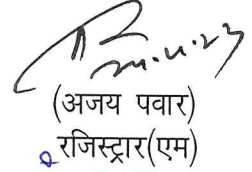 (अजय पवार)
रजिस्ट्रार(एम)